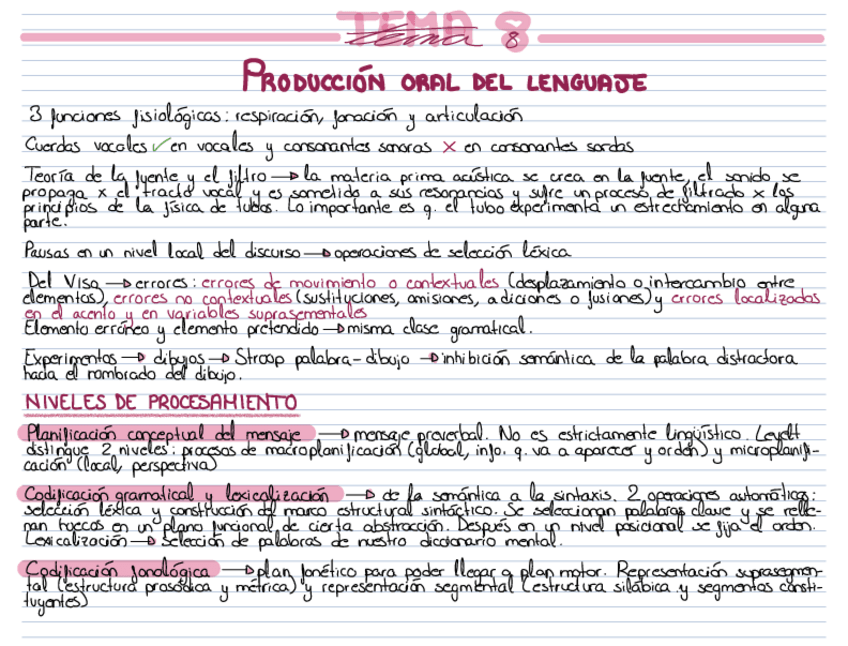 TEMA 8
tema 8
PRODUCCIÓN ORAL DEL LENGUAJE
3 funciones fisiológicas: respiración, fonación y articulación
Cuerdas vocales ✓ en vocales y consonantes sonoras × en consonantes sordas
Teoría de la fuente y el filtro → la materia prima acústica se crea en la fuente, el sonido se
propaga x el tracto vocal y es sometido a sus resonancias y sufre un proceso de filtrado x los
principios de la física de tubos. Lo importante es q. el tubo experimenta un estrechamiento en alguna
parte.
Pausas en un nivel local del discurso → operaciones de selección léxica
Del Viso → errores: errores de movimiento o contextuales (desplazamiento o intercambio entre
elementos), errores no contextuales (sustituciones, omisiones, adiciones o fusiones) y errores localizados
en el acento y en variables suprasementales
Elemento erróneo y elemento pretendido → misma clase gramatical.
Experimentos → dibujos → Stroop palabra-dibujo → inhibición semántica de la palabra distractora
hacia el nombrado del dibujo.
NIVELES DE PROCESAMIENTO
Planificación conceptual del mensaje → mensaje preverbal. No es estrictamente lingüístico. Levelt
distingue 2 niveles: procesos de macroplanificación (global, info. q. va a aparecer y orden) y microplanifi-
cación (local, perspectiva)
Codificación gramatical y lexicalización → de la semántica a la sintaxis. 2 operaciones automáticas:
selección léxica y construcción del marco estructural sintáctico. Se seleccionan palabras clave y se relle-
nan huecos en un plano funcional de cierta abstracción. Después en un nivel posicional se fija el orden.
Lexicalización → selección de palabras de nuestro diccionario mental.
Codificación fonológica → plan fonético para poder llegar a plan motor. Representación suprasegmen-
tal (estructura prosódica y métrica) y representación segmental (estructura silábica y segmentos consti-
tuyentes)